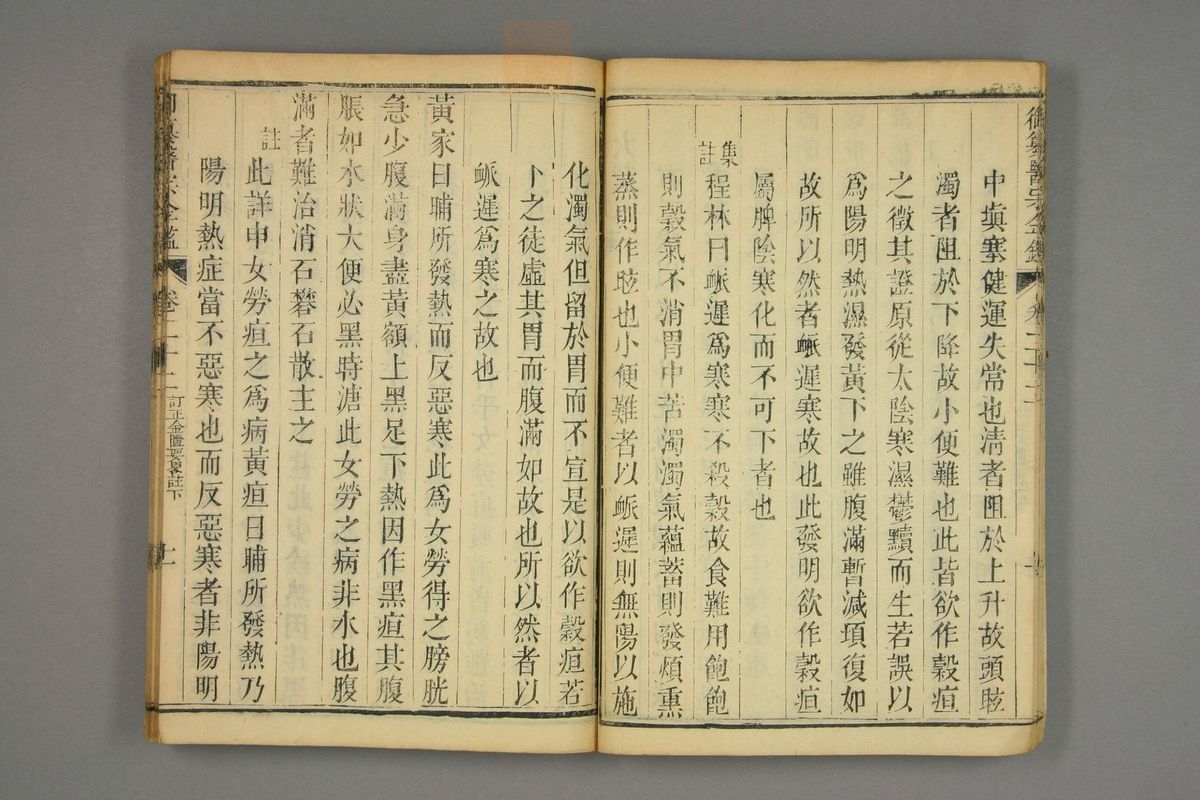 御纂醫宗金鑑 卷二十二
中塡塞健運失常也淸者阻於上升故頭眩
濁者阻於下降故小便難也此皆欲作穀疸
之徵其證原從太陰寒濕鬱黷而生若誤以
爲陽明熱濕發黃下之雖腹滿暫減項復如
故所以然者䘑遲寒故也此發明欲作穀疸
屬脾陰寒化而不可下者也
集註 程林曰䘑遲爲寒寒不殺穀故食難用飽飽
則穀氣不消胃中苦濁濁氣蘊蓄則發煩熏
蒸則作眩也小便難者以䘑遲則無陽以施
化濁氣但留於胃而不宣是以欲作穀疸若
卜之徒虛其胃而腹滿如故也所以然者以
䘑遲爲寒之故也
黃家日晡所發熱而反惡寒此爲女勞得之膀胱
急少腹滿身盡黃額上黑足下熱因作黑疸其腹
脹如水狀大便必黑時溏此女勞之病非水也腹
滿者難治消石礬石散主之
註 此詳申女勞疸之爲病黃疸日晡所發熱乃
陽明熱症當不惡寒也而反惡寒者非陽明
御纂醫宗金鑑 卷二十二 訂正金匱要畧註下